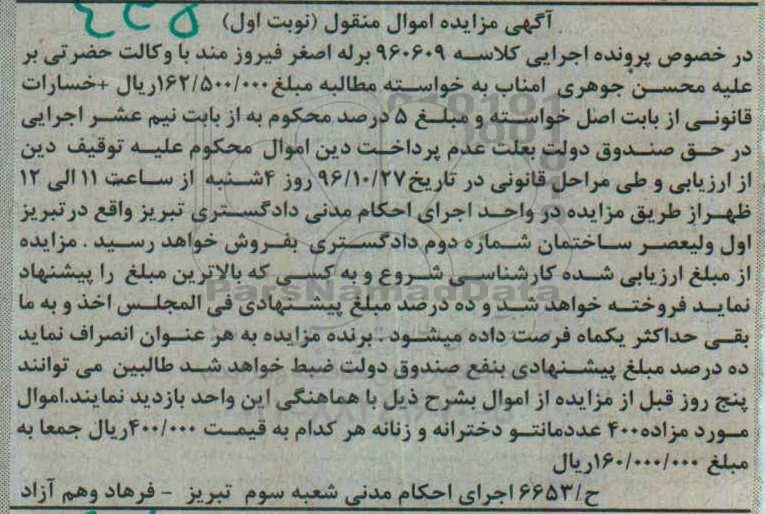 آگهی مزایده اموال منقول (نوبت اول)
در خصوص پرونده اجرایی کلاسه ۹۶۰۶۰۹ برله اصغر فیروز مند با وکالت حضرتی بر
علیه محسن جوهری امناب به خواسته مطالبه مبلغ ۱۶۲/۵۰۰/۰۰۰ریال +خسارات
قانونی از بابت اصل خواسته و مبلغ ۵ درصد محکوم به از بابت نیم عشر اجرایی
در حق صندوق دولت بعلت عدم پرداخت دین اموال محکوم علیه توقیف دین
از ارزیابی و طی مراحل قانونی در تاریخ ۹۶/۱۰/۲۷ روز ۴شنبه از ساعت ۱۱ الی ۱۲
ظهراز طریق مزایده در واحد اجرای احکام مدنی دادگستری تبریز واقع در تبریز
اول ولیعصر ساختمان شماره دوم دادگستری بفروش خواهد رسید . مزایده
از مبلغ ارزیابی شده کارشناسی شروع و به کسی که بالاترین مبلغ را پیشنهاد
نماید فروخته خواهد شد و ده درصد مبلغ پیشنهادی فی المجلس اخذ و به ما
بقی حداکثر یکماه فرصت داده میشود . برنده مزایده به هر عنوان انصراف نماید
ده درصد مبلغ پیشنهادی بنفع صندوق دولت ضبط خواهد شد طالبین می توانند
پنج روز قبل از مزایده از اموال بشرح ذیل با هماهنگی این واحد بازدید نمایند.اموال
مورد مزاده ۴۰۰ عددمانتو دخترانه و زنانه هر کدام به قیمت ۴۰۰/۰۰۰ریال جمعا به
مبلغ ۱۶۰/۰۰۰/۰۰۰ریال
ح/۶۶۵۳ اجرای احکام مدنی شعبه سوم تبریز - فرهاد وهم آزاد
ParsNamadData